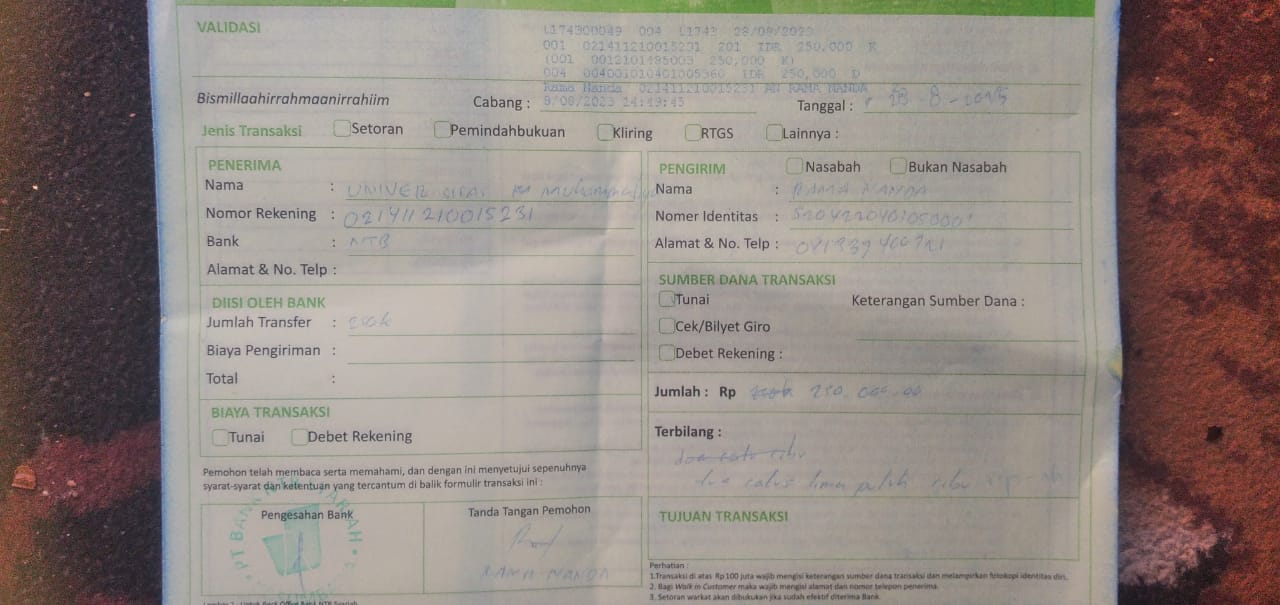 VALIDASI
L174300049 004 L1743 28/08/2023
001 021411210015231 201 IDR 250,000 K
(001 0012101495003 250,000 K)
004 004001010401005360 IDR 250,000 D
Rama Nanda 021411210015231 AN RAMA NANDA
8/08/2023 14:49:45
Bismillaahirrahmaanirrahiim
Cabang :
Tanggal : 28 - 8 - 2023
Jenis Transaksi Setoran Pemindahbukuan Kliring RTGS Lainnya :
PENERIMA
Nama :
Nomor Rekening : 021411210015231
Bank : NTB
Alamat & No. Telp :
DIISI OLEH BANK
Jumlah Transfer :
Biaya Pengiriman :
Total :
BIAYA TRANSAKSI
Tunai Debet Rekening
Pemohon telah membaca serta memahami, dan dengan ini menyetujui sepenuhnya
syarat-syarat dan ketentuan yang tercantum di balik formulir transaksi ini :
Pengesahan Bank
PT BANK NTB SYARIAH
Tanda Tangan Pemohon
RAMA NANDA
PENGIRIM Nasabah Bukan Nasabah
Nama : RAMA NANDA
Nomer Identitas :
Alamat & No. Telp :
SUMBER DANA TRANSAKSI
Tunai
Keterangan Sumber Dana :
Cek/Bilyet Giro
Debet Rekening :
Jumlah : Rp 250.000.00
Terbilang :
dua ratus ribu
dua ratus lima puluh ribu rupiah
TUJUAN TRANSAKSI
Perhatian :
1.Transaksi di atas Rp 100 juta wajib mengisi keterangan sumber dana transaksi dan melampirkan fotokopi identitas diri.
2. Bagi Walk in Customer maka wajib mengisi alamat dan nomor telepon penerima.
3. Setoran warkat akan dibukukan jika sudah efektif diterima Bank.